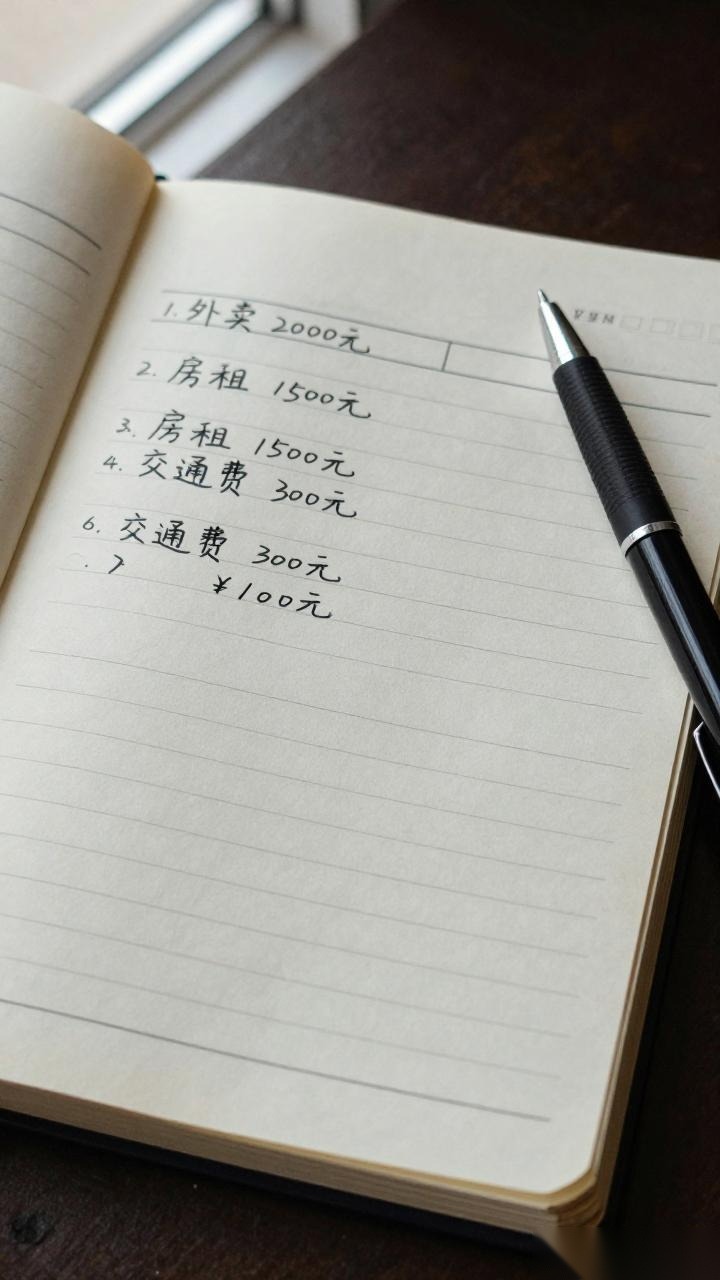 1. 外卖 2000元
2. 房租 1500元
3. 房租 1500元
4. 交通费 300元
6. 交通费 300元
¥100元